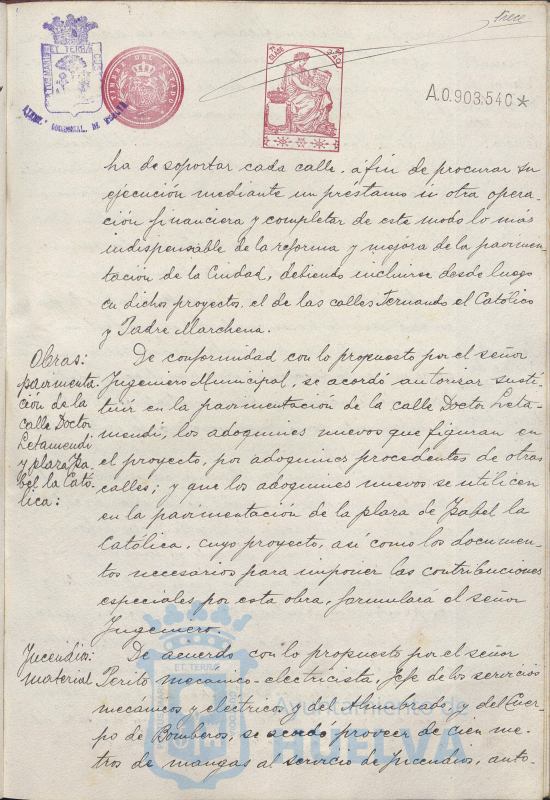 Trece
ET TERRÆ
TIMBRE DEL ESTADO
7ª CLASE
A.0.903.540*
ha de soportar cada calle, a fin de procurar su
ejecución mediante un préstamo u otra opera-
ción financiera y completar de este modo lo más
indispensable de la reforma y mejora de la pavimen-
tación de la Ciudad, debiendo incluirse desde luego
en dichos proyectos, el de las calles Fernando el Católico
y Padre Marchena.
Obras:
pavimenta-
ción de la
calle Doctor
Letamendi
y plaza Isa-
bel la Cató-
lica:
De conformidad con lo propuesto por el señor
Ingeniero Municipal, se acordó autorizar susti-
tuir en la pavimentación de la calle Doctor Leta-
mendi, los adoquines nuevos que figuran en
el proyecto, por adoquines procedentes de otras
calles; y que los adoquines nuevos se utilicen
en la pavimentación de la plaza de Isabel la
Católica, cuyo proyecto, así como los documen-
tos necesarios para imponer las contribuciones
especiales por esta obra, formulará el señor
Ingeniero.
Incendios:
material
De acuerdo con lo propuesto por el señor
Perito mecánico-electricista, Jefe de los servicios
mecánicos y eléctricos y del Alumbrado, y del Cuer-
po de Bomberos, se acordó proveer de cien me-
tros de mangas al servicio de Incendios, auto-
ET TERRÆ
Ayuntamiento de
HUELVA